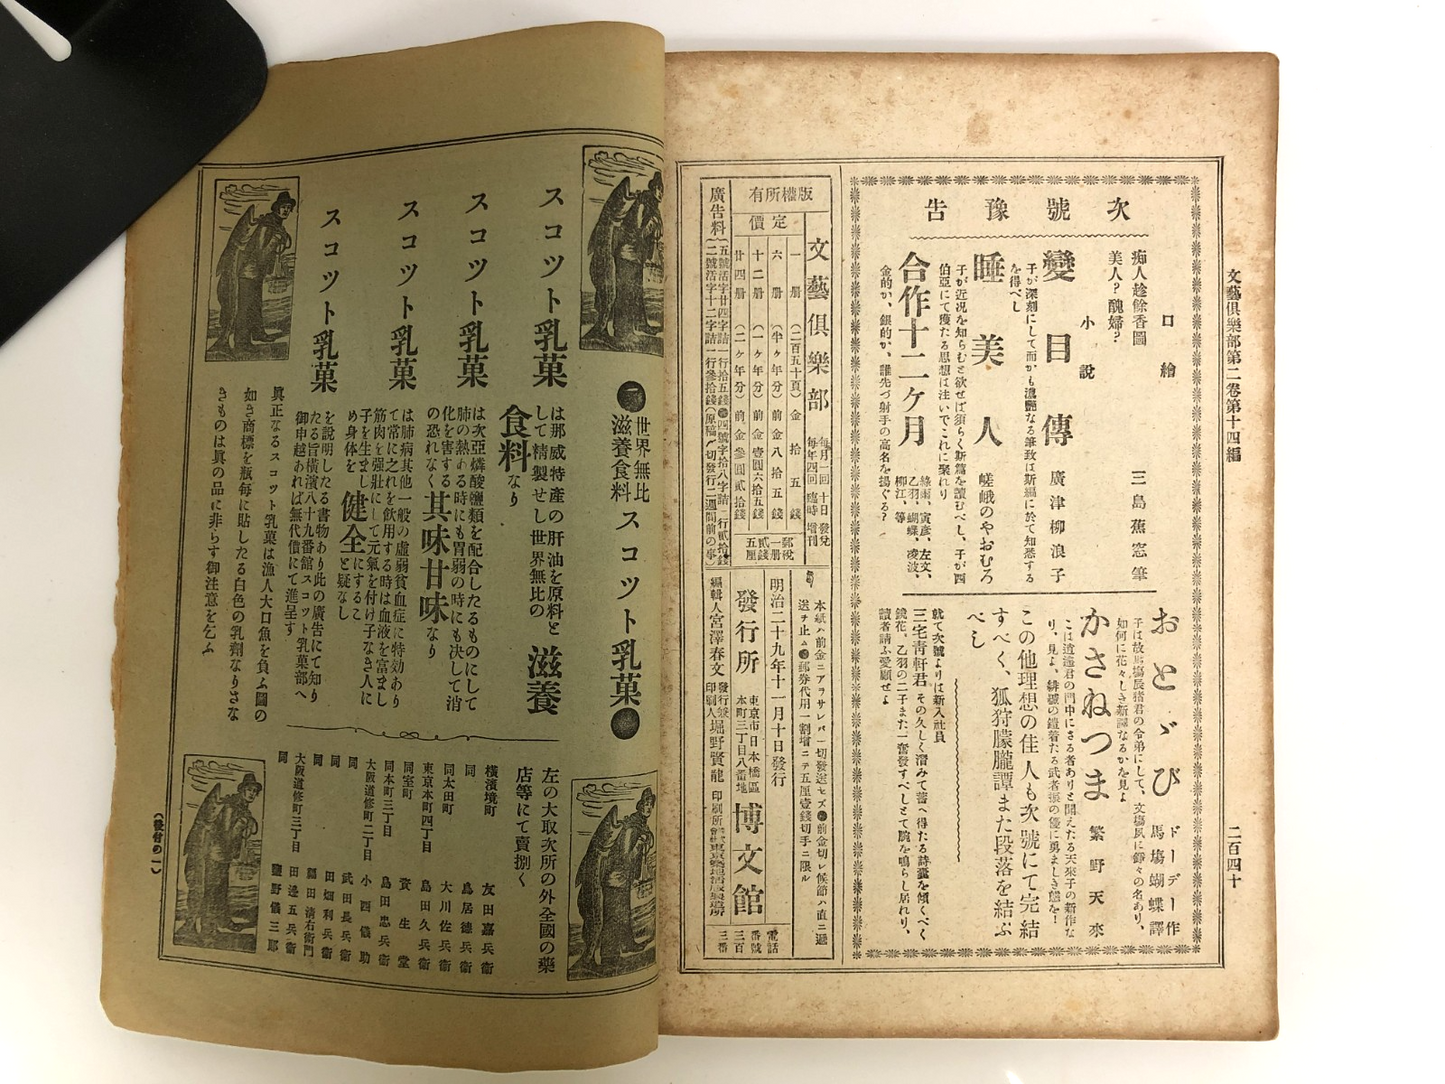 文藝俱樂部第二卷第十四編
二百四十
次號豫告
口繪
痴人趁餘香圖
美人?醜婦?
三島蕉窓筆
小說
變目傳
廣津柳浪子
子が深刻にして而かも濃艷なる筆致は斯編に於て知悉する
を得べし
睡美人
嵯峨のやおむろ
子が近况を知らむと欲せば須らく斯篇を讀むべし、子が四
伯亞にて獲たる思想は注いでこれに聚れり
合作十二ヶ月
綠雨、寅彥、左文、
乙羽、蝴蝶、凌波、
柳江、等
金的か、銀的か、誰先づ射手の高名を揚ぐる?
おとゞび
ドーデー作
馬塲蝴蝶譯
如何に花々しき新譯なるかを見よ
かさねつま
繁野天來
この他理想の佳人も次號にて完結
すべく、狐狩朦朧譚また段落を結ぶ
べし
就て次號よりは新入社員
三宅靑軒君その久しく潛みて蓄へ得たる詩囊を傾くべく
鏡花、乙羽の二子また一奮發すべしとて腕を鳴らし居れり、
讀者請ふ愛顧せよ
版權所有
文藝俱樂部
每月一回十日發兌
每年四回臨時增刊
定價
一册(二百五十頁)金拾五錢
六册(半ヶ年分)前金八拾五錢
十二册(一ヶ年分)前金壹圓六拾五錢
廿四册(二ヶ年分)前金參圓貳拾錢
郵稅一册貳錢五厘
廣告料
五號活字廿四字詰一行拾五錢●四號字拾八字詰一行貳拾錢
二號活字十二字詰一行參拾錢(原稿ハ一切發行二週間前の事)
本紙ハ前金ニアラサレバ一切發送セズ●前金切レ候節ハ直ニ遞
送ヲ止ム●郵券代用一割增ニテ五厘壹錢切手ニ限ル
明治二十九年十一月十日發行
發行所
東京市日本橋區
本町三丁目八番地
博文館
電話
番號
三百
三番
編輯人宮澤春文
發行兼
印刷人堀野賢龍
スコツト乳菓
スコツト乳菓
スコツト乳菓
スコツト乳菓
世界無比
滋養食料
スコツト乳菓
は那威特產の肝油を原料と
して精製せし世界無比の
滋養
食料なり
は次亞燐酸鹽類を配合したるものにして
肺の熱ある時にも胃弱の時にも決して消
化を害する
の恐れなく其味甘味なり
は肺病其他一般の虛弱貧血症に特効あり
て常に之れを飮用する時は血液を富まし
筋肉を强壯にして元氣を付け子なき人に
子を生まし
め身体を健全にするこ
と疑なし
を說明したる書物あり此の廣告にて知り
たる旨橫濱八十九番館スコツト乳菓部へ
御申越あれば無代價にて進呈す
眞正なるスコツト乳菓は漁人大口魚を負ふ圖の
如き商標を瓶每に貼したる白色の乳劑なりさな
きものは眞の品に非らす御注意を乞ふ
左の大取次所の外全國の藥
店等にて賣捌く
橫濱境町 友田嘉兵衞
同 島居德兵衞
同太田町 大川佐兵衞
東京本町四丁目 島田久兵衞
同室町 資生堂
同本町三丁目 島田忠兵衞
大阪道修町二丁目 小西儀助
同 武田長兵衞
同 田畑利兵衞
同 田邊五兵衞
大阪道修町三丁目 鹽野儀三郞
(後付の一)